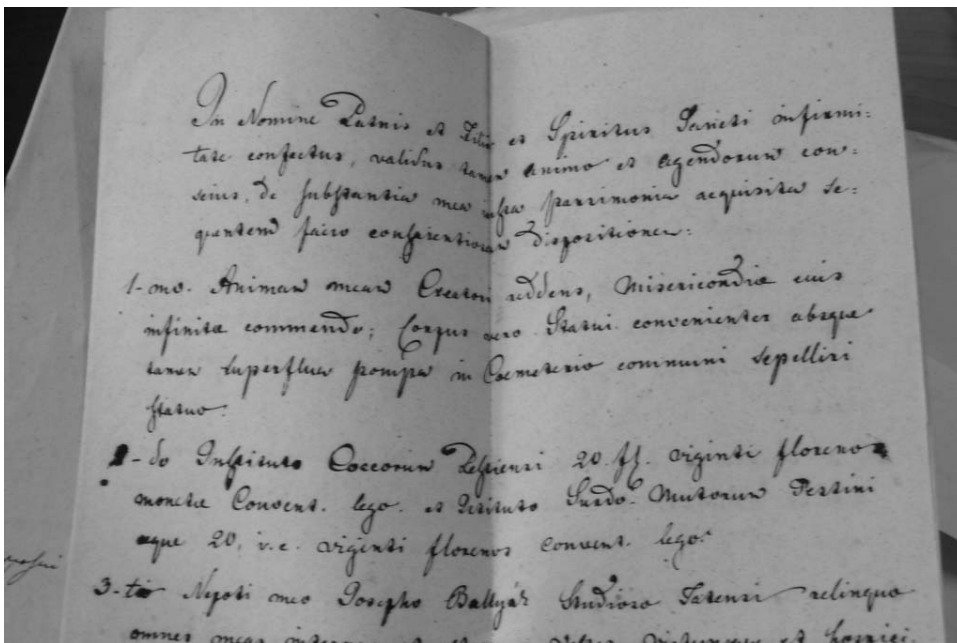 In Nomine Patris et Filii et Spiritus Sancti infirmi:
tate confectus, validus tamen animo et agendorum con:
scius, de substantia mea infra parrimonia acquisita se:
quentem facio dispositionem:
1-mo. Animam meam Creatori reddens, Misericordiæ eius
infinitæ commendo; Corpus vero Statui convenienter absque
tamen superflua pompa in Coemeterio communi sepelliri
statuo.
2-do Instituto Coecorum Pestiensi 20 fl. viginti florenos
monetæ Convent. lego. et Istituto Surdo-Mutorum Pestini
æque 20, i.e. viginti florenos convent. lego.
3-tio Nepoti meo Josepho Studioso Tatensi relinquo
omnes meas et